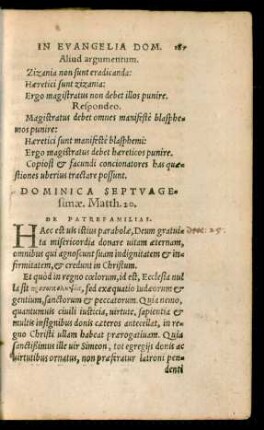 IN EVANGELIA DOM. 187
Aliud argumentum.
Zizania non sunt eradicanda:
Hæretici sunt zizania:
Ergo magistratus non debet illos punire.
Respondeo.
Magistratus debet omnes manifestè blasphe-
mos punire:
Hæretici sunt manifestè blasphemi:
Ergo magistratus debet hæreticos punire.
Copiosi & facundi concionatores has quæ-
stiones uberius tractare possunt.
DOMINICA SEPTVAGE-
simæ. Matth. 20.
DE PATREFAMILIAS.
HAec est uis istius parabolæ, Deum gratui-
ta misericordia donare uitam æternam,
omnibus qui agnoscunt suam indignitatem & in-
firmitatem, & credunt in Christum.
Et quòd in regno cœlorum, id est, Ecclesia nul
la sit, sed exæquatio Iudæorum &
gentium, sanctorum & peccatorum. Quia nemo,
quantumuis ciuili iusticia, uirtute, sapientia &
multis insignibus donis cæteros antecellat, in re-
gno Christi ullam habeat prærogatiuam. Quia
sanctissimus ille uir Simeon, tot egregijs donis ac
uirtutibus ornatus, non præferatur latroni pen-
denti